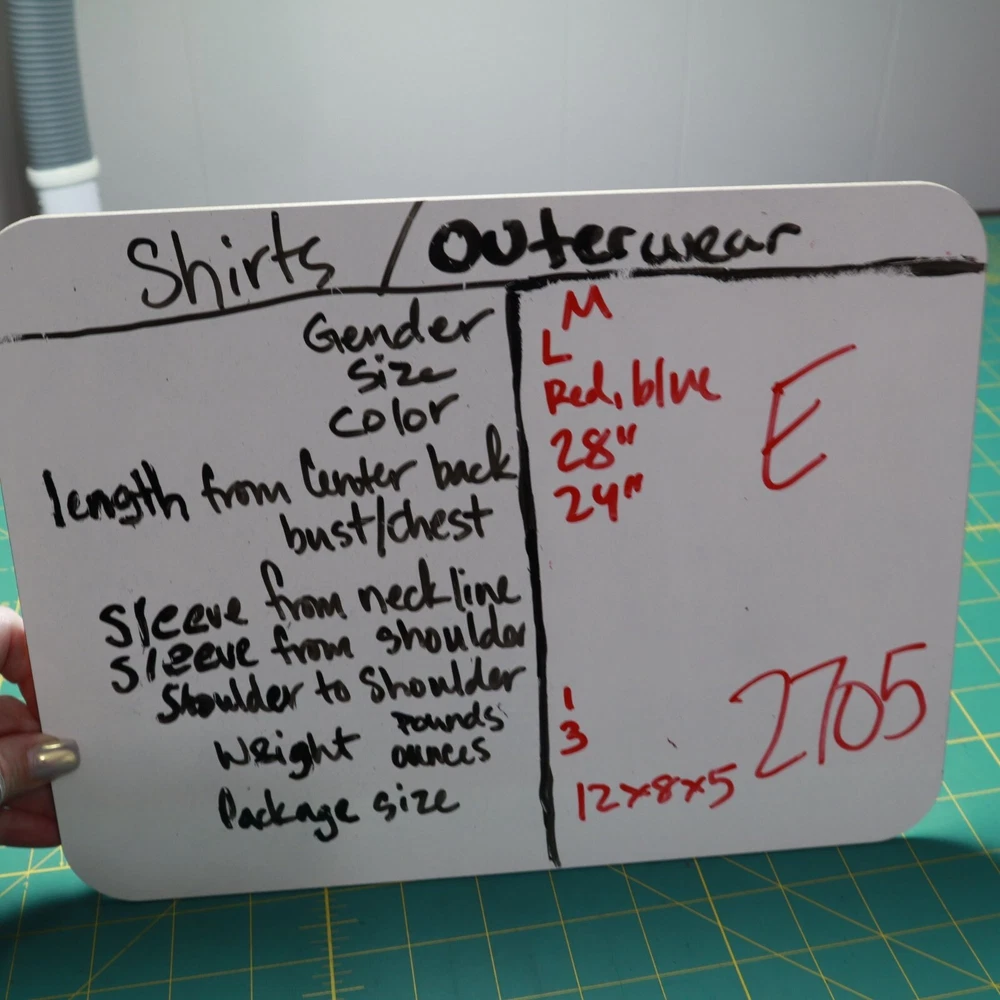 Shirts / Outerwear
Gender M
Size L
Color Red, blue
length from Center back 28"
bust/chest 24"
E
Sleeve from neckline
Sleeve from shoulder
Shoulder to Shoulder
Weight Pounds 1
ounces 3
2705
Package size 12x8x5